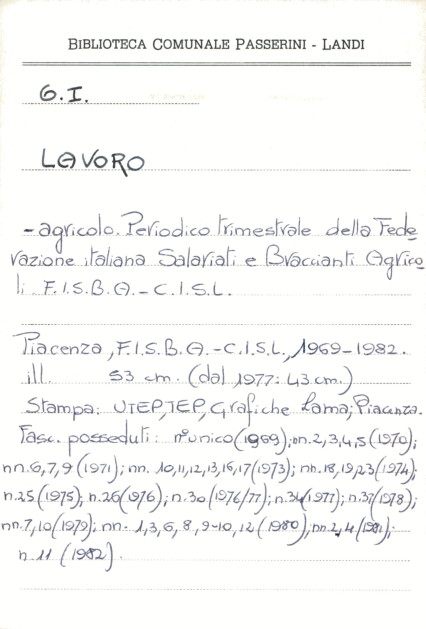 BIBLIOTECA COMUNALE PASSERINI - LANDI
G.I.
LAVORO
- agricolo. Periodico trimestrale della Fede
razione italiana Salariati e Braccianti Agrico
li F.I.S.B.A. - C.I.S.L.
Piacenza, F.I.S.B.A. - C.I.S.L., 1969-1982.
ill. 53 cm. (dal 1977: 43 cm.)
Stampa: UTEP, TEP, Grafiche Lama; Piacenza.
Fasc. posseduti: n°unico (1969); nn. 2,3,4,5 (1970);
nn. 6,7,9 (1971); nn. 10,11,12,13,16,17 (1973); nn. 18,19,23 (1974);
n. 25 (1975); n. 26 (1976); n. 30 (1976/77); n. 34 (1977); n. 37 (1978);
nn. 7,10 (1979); nn. 1,3,6,8,9-10,12 (1980); nn. 2,4 (1981);
n. 11 (1982).